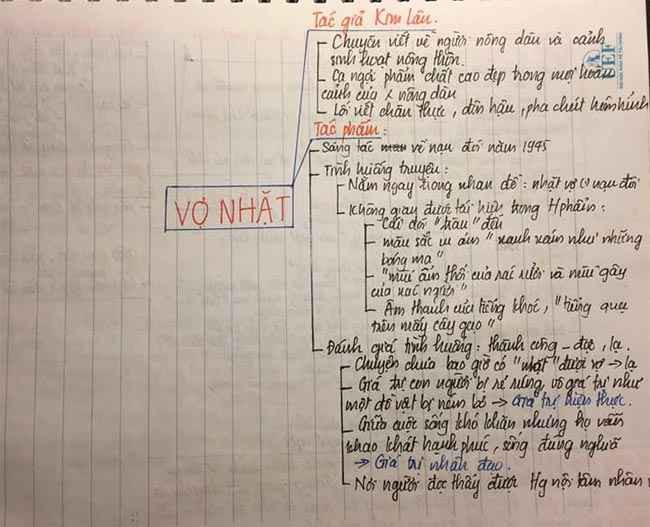 Tác giả Kim Lân.
Chuyên viết về người nông dân và cảnh
sinh hoạt nông thôn.
Ca ngợi phẩm chất cao đẹp trong mọi hoàn
cảnh của nông dân
Lối viết chân thực, đôn hậu, pha chút hóm hỉnh
Tác phẩm:
Sáng tác về nạn đói năm 1945
Tình huống truyện:
Nằm ngay trong nhan đề: nhặt vợ nạn đói
Không gian được tái hiện trong phẩm:
Cái đói "tràn" đến
VỢ NHẶT
màu sắc u ám "xanh xám như những
bóng ma"
"mùi ẩm thối của rác rưởi và mùi gây
của xác người"
Âm thanh của tiếng khóc, "tiếng quạ
trên mấy cây gạo"
Đánh giá tình huống: thành công - độc, lạ.
Chuyện chưa bao giờ có "nhặt" được vợ → lạ
Giá trị con người bị rẻ rúng, vô giá trị như
một đồ vật bị ném bỏ → Giá trị hiện thực.
Giữa cuộc sống khó khăn nhưng họ vẫn
khao khát hạnh phúc, sống đúng nghĩa
→ Giá trị nhân đạo.
Nơi người đọc thấy được nội tâm nhân